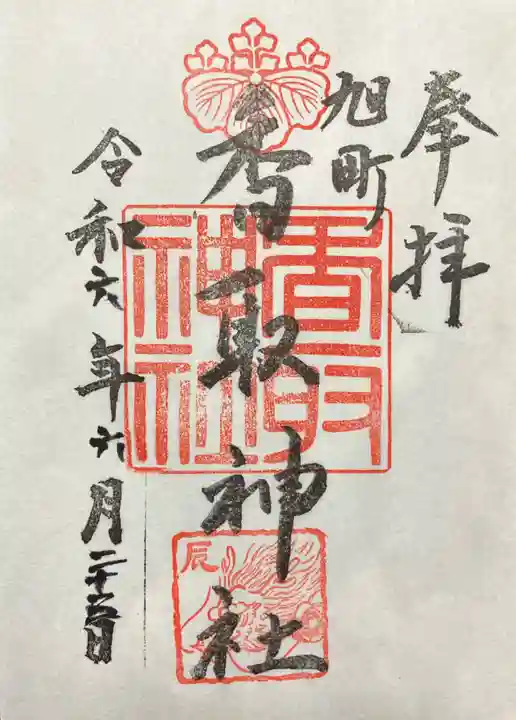 奉拝
旭町
香取神社
香取神社
辰
令和六年六月二十五日